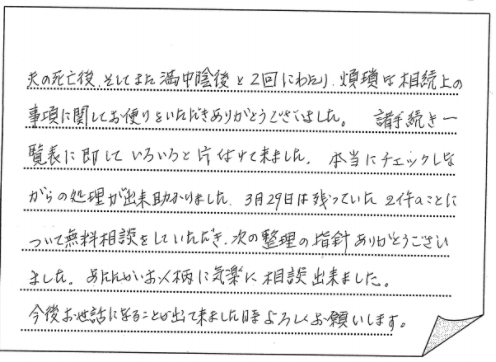 夫の死亡後、そしてまた満中陰後と2回にわたり、煩瑣な相続上の
事項に関してお便りをいただきありがとうございました。 諸手続き一
覧表に即していろいろと片付けて来ました。 本当にチェックしな
がらの処理が出来助かりました。3月29日は残っていた2件のことに
ついて無料相談をしていただき、次の整理の指針ありがとうござい
ました。あたたかいお人柄に気楽に相談出来ました。
今後お世話になることが出て来ました時よろしくお願いします。